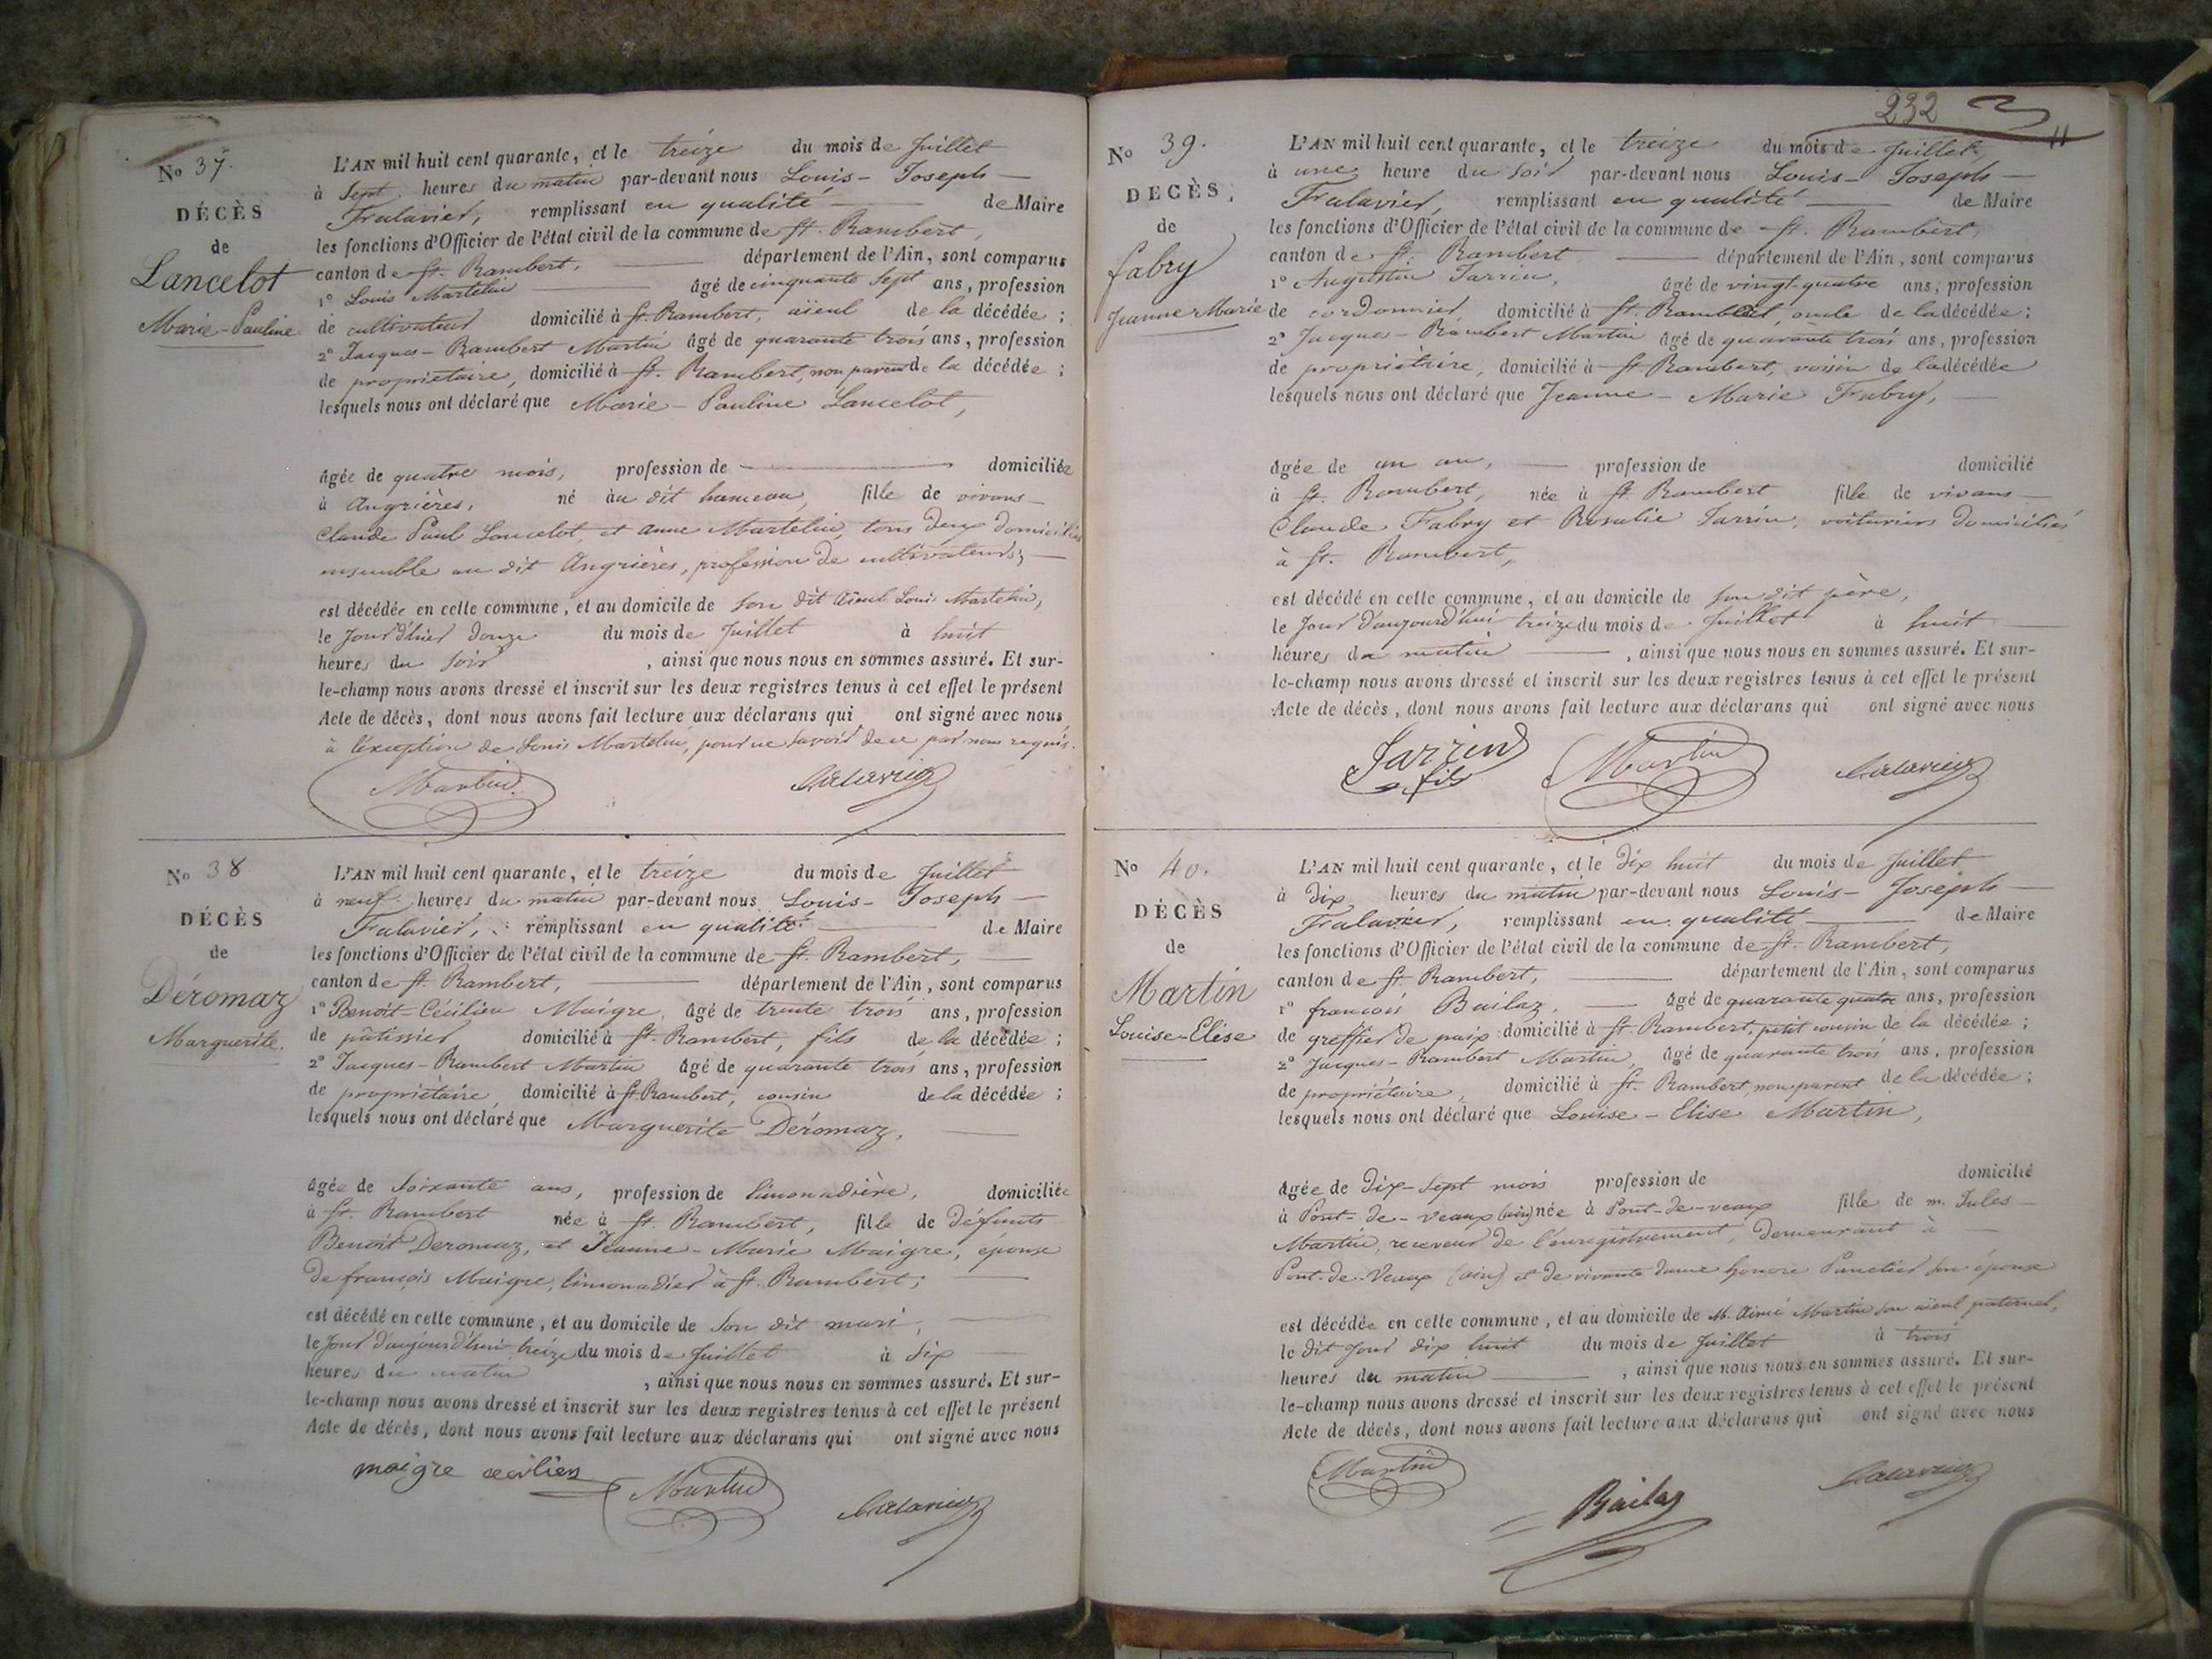 No 37.
DÉCÈS
de
Lancelot
Marie-Pauline
L'AN mil huit cent quarante, et le treize du mois de Juillet
à Sept heures du matin par-devant nous Louis-Joseph
Fralavier, remplissant en qualité de Maire
les fonctions d'Officier de l'état civil de la commune de St. Rambert,
canton de St. Rambert, département de l'Ain, sont comparus
1° Louis Martelin âgé de cinquante Sept ans, profession
de cultivateur domicilié à St. Rambert, aïeul de la décédée ;
2° Jacques-Rambert Martin âgé de quarante trois ans, profession
de propriétaire, domicilié à St. Rambert, non parent de la décédée ;
lesquels nous ont déclaré que Marie-Pauline Lancelot,
âgée de quatre mois, profession de domiciliée
à Angrières, né au dit hameau, fille de vivans
Claude Paul Lancelot, et Anne Martelin, tous deux domiciliés
ensemble au dit Angrières, profession de cultivateurs ;
est décédée en cette commune, et au domicile de son dit Aïeul Louis Martelin,
le Jour d'hier douze du mois de Juillet à huit
heures du soir, ainsi que nous nous en sommes assuré. Et sur-
le-champ nous avons dressé et inscrit sur les deux registres tenus à cet effet le présent
Acte de décès, dont nous avons fait lecture aux déclarans qui ont signé avec nous,
à l'exception de Louis Martelin, pour ne savoir de ce par nous requis.
Martin
Fralavier
No 38
DÉCÈS
de
Déromaz
Marguerite.
L'AN mil huit cent quarante, et le treize du mois de Juillet
à neuf heures du matin par-devant nous Louis-Joseph
Fralavier, remplissant en qualité de Maire
les fonctions d'Officier de l'état civil de la commune de St. Rambert,
canton de St. Rambert, département de l'Ain, sont comparus
1° Benoît-Cécilien Maigre, âgé de trente trois ans, profession
de pâtissier domicilié à St. Rambert, fils de la décédée ;
2° Jacques-Rambert Martin âgé de quarante trois ans, profession
de propriétaire, domicilié à St. Rambert, cousin de la décédée ;
lesquels nous ont déclaré que Marguerite Déromaz,
âgée de Soixante ans, profession de limonadière, domiciliée
à St. Rambert née à St. Rambert, fille de défunts
Benoît Deromaz, et Jeanne-Marie Maigre, épouse
de françois Maigre, limonadier à St. Rambert ;
est décédé en cette commune, et au domicile de son dit mari,
le Jour d'aujourd'hui treize du mois de Juillet à six
heures du matin, ainsi que nous nous en sommes assuré. Et sur-
le-champ nous avons dressé et inscrit sur les deux registres tenus à cet effet le présent
Acte de décès, dont nous avons fait lecture aux déclarans qui ont signé avec nous
maigre cecilien
Martin
Fralavier
232
No 39.
DÉCÈS,
de
fabry
Jeanne Marie
L'AN mil huit cent quarante, et le treize du mois de Juillet,
à une heure du soir par-devant nous Louis-Joseph
Fralavier, remplissant en qualité de Maire
les fonctions d'Officier de l'état civil de la commune de St. Rambert,
canton de St. Rambert département de l'Ain, sont comparus
1° Augustin Sarrin, âgé de vingt-quatre ans, profession
de cordonnier, domicilié à St. Rambert, oncle de la décédée ;
2° Jacques-Rambert Martin âgé de quarante trois ans, profession
de propriétaire, domicilié à St. Rambert, voisin de la décédée
lesquels nous ont déclaré que Jeanne-Marie Fabry,
âgée de un an, profession de domicilié
à St. Rambert, née à St. Rambert fille de vivans
Claude Fabry et Rosalie Sarrin, voituriers domiciliés
à St. Rambert,
est décédé en cette commune, et au domicile de son dit père,
le Jour d'aujourd'hui treize du mois de Juillet à huit
heures du matin, ainsi que nous nous en sommes assuré. Et sur-
le-champ nous avons dressé et inscrit sur les deux registres tenus à cet effet le présent
Acte de décès, dont nous avons fait lecture aux déclarans qui ont signé avec nous
Sarrin
fils
Martin
Fralavier
No 40.
DÉCÈS
de
Martin
Louise-Elise
L'AN mil huit cent quarante, et le dix huit du mois de Juillet
à dix heures du matin par-devant nous Louis-Joseph
Fralavier, remplissant en qualité de Maire
les fonctions d'Officier de l'état civil de la commune de St. Rambert,
canton de St. Rambert, département de l'Ain, sont comparus
1° françois Bailaz, âgé de quarante quatre ans, profession
de greffier de paix domicilié à St. Rambert, petit cousin de la décédée ;
2° Jacques-Rambert Martin, âgé de quarante trois ans, profession
de propriétaire, domicilié à St. Rambert, non parent de la décédée ;
lesquels nous ont déclaré que Louise-Elise Martin,
âgée de Dix-sept mois profession de domicilié
à Pont-de-veaux (ain) née à Pont-de-veaux fille de m. Jules
Martin, receveur de l'enregistrement, demeurant à
Pont-de-Veaux (ain) et de vivante dame honore Panetier son épouse
est décédée en cette commune, et au domicile de M. Aimé Martin son aïeul paternel,
le dit jour dix huit du mois de Juillet à trois
heures du matin, ainsi que nous nous en sommes assuré. Et sur-
le-champ nous avons dressé et inscrit sur les deux registres tenus à cet effet le présent
Acte de décès, dont nous avons fait lecture aux déclarans qui ont signé avec nous
Martin
Bailaz
Fralavier